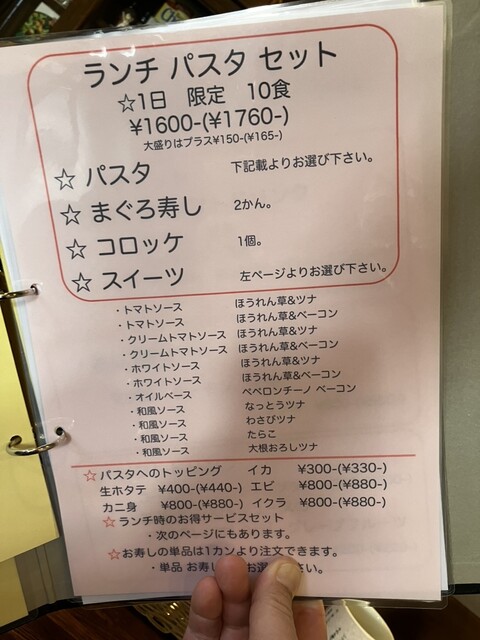 ランチ パスタ セット
☆1日 限定 10食
¥1600-(¥1760-)
大盛りはプラス¥150-(¥165-)
☆ パスタ 下記載よりお選び下さい。
☆ まぐろ寿し 2かん。
☆ コロッケ 1個。
☆ スイーツ 左ページよりお選び下さい。
・トマトソース ほうれん草&ツナ
・トマトソース ほうれん草&ベーコン
・クリームトマトソース ほうれん草&ツナ
・クリームトマトソース ほうれん草&ベーコン
・ホワイトソース ほうれん草&ツナ
・ホワイトソース ほうれん草&ベーコン
・オイルベース ペペロンチーノ ベーコン
・和風ソース なっとうツナ
・和風ソース わさびツナ
・和風ソース たらこ
・和風ソース 大根おろしツナ
☆パスタへのトッピング イカ ¥300-(¥330-)
生ホタテ ¥400-(¥440-) エビ ¥800-(¥880-)
カニ身 ¥800-(¥880-) イクラ ¥800-(¥880-)
☆ランチ時のお得サービスセット
・次のページにもあります。
☆お寿しの単品は1カンより注文できます。
・単品 お寿し お選 さい。